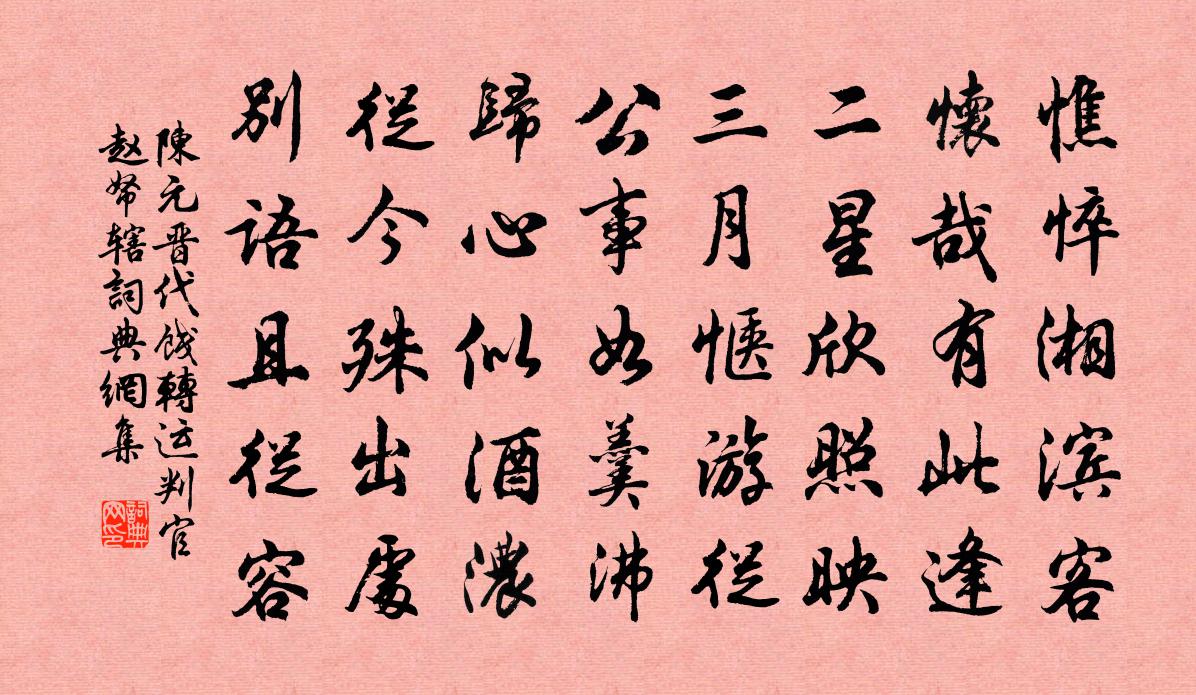 憔悴湘滨客
懷哉有此逢
二星欣照映
三月愜游從
公事如羹沸
歸心似酒濃
從今殊出處
別語且從容
陳元晋代餞轉运判官
赵帑辖詞典網集
詞典网印